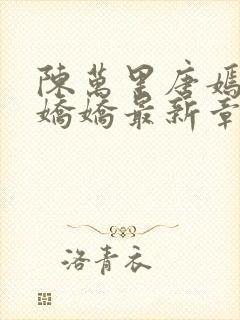 陳萬里唐嫣
嬌嬌最新章
洛青衣